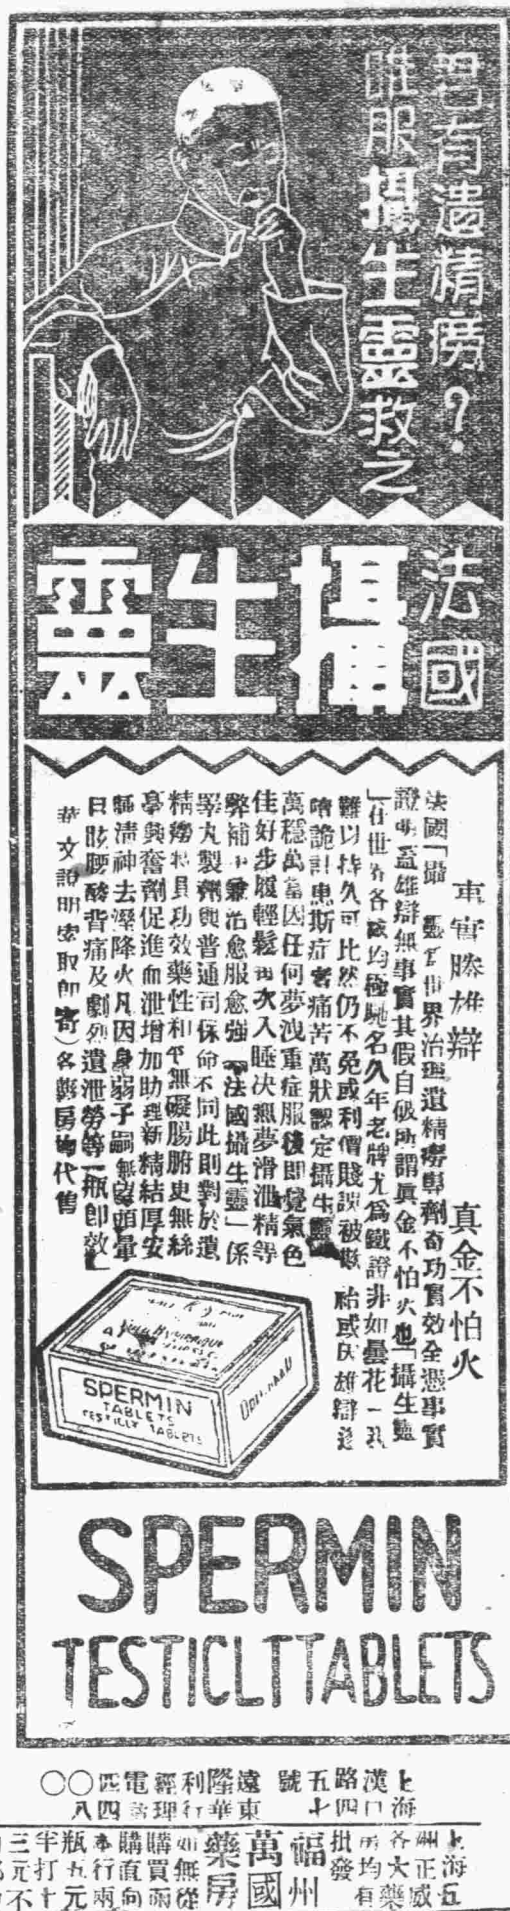 君有遺精癆？
唯服攝生靈救之
法國
攝生靈
事實勝雄辯　真金不怕火
法國「攝　靈」世界治理遺精癆專劑奇功實效全憑事實
證明蓋雄辯無事實其假自破所謂真金不怕火也「攝生靈
」在世界各國均極馳名久年老牌尤為鐵證非如曇花一現
難以持久可比然仍不免或利價賤誤被欺　或因雄辯
詭計患斯症者痛苦萬狀認定攝生靈
萬穩萬當因任何夢洩重症服後即覺氣色
佳好步履輕鬆每次入睡決無夢滑泄精等
弊補中兼治愈服愈強「法國攝生靈」係
睪丸製劑與普通司保命不同此則對於遺
精癆特具功效藥性和平無礙腸腑更無絲
毫興奮劑促進血泄增加助理新精結厚安
腦清神去溼降火凡因身弱子嗣無望頭暈
目眩腰酸背痛及劇烈遺泄勞等一瓶即效」
華文說明索取即寄）各藥房均代售
SPERMIN
TABLETS
TESTICLT TABLETS
SPERMIN
TESTICLTTABLETS
上海
漢口
路四
五七
號
遠東
隆華
利行
經理
電話
四四
〇〇八
〇
上海五
洲正威
各大藥
房均有
批發
福州
萬國
藥房
如無從
購買兩
購直向
本行兩
瓶五元
半打十
三元不